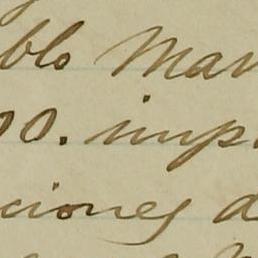 blo Mar
00. imp.
ciones d